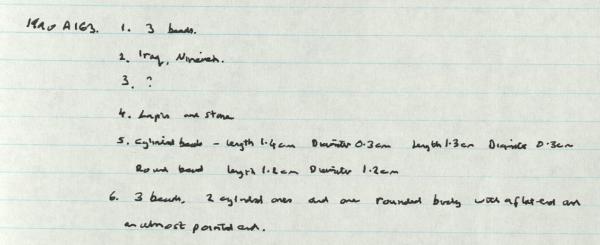 A163. 1. 3 beads.
2. Iraq, Nineveh.
3. ?
4. Lapis and stone
5. Cylindrical beads - length 1.4cm Diameter 0.3cm length 1.3cm Diameter 0.3cm
Round bead length 1.2cm Diameter 1.2cm
6. 3 beads. 2 cylindrical ones and one rounded body with a flat end and
an almost pointed end.